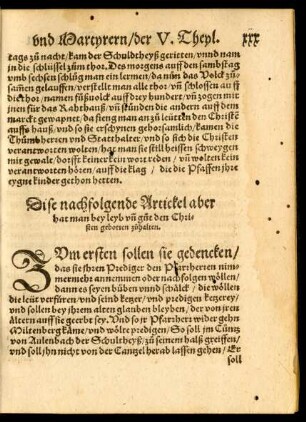 vnd Martyrern/der V. Theyl. XXX
tags zů nacht/kam der Schuldtheyß geritten/vnnd nam
in die schlüssel zum thor. Des morgens auff den sambßtag
vmb sechsen schlůg man ein lermen/da nůn das Volck zů-
samen gelauffen/verstellt man alle thor/vn̄ schlossen auff
die thor/namen fůßuolck auff drey hundert/vn̄ zogen mit
jnen für das Rahthauß/vn̄ stůnden die andern auff dem
marckt gewapnet/da stieng man an zů leütten den Christē
auffs hauß/vnd so sie erschynen gehorsamlich/kamen die
Thůmbherren vnd Statthalter/vnd so sich die Christen
verantworten wolten/hat man sie still heissen schweygen
mit gewalt/dorfft keiner kein wort reden/vn̄ wolten kein
verantworten hören/auff die klag/die die Pfaffen jhre
eygne kinder gethon hetten.
Dise nachfolgende Artickel aber
hat man bey leyb vn̄ gůt den Chri-
sten gebotten zůhalten.
ZVm ersten sollen sie gedencken/
das sie jhren Prediger den Pfarrherren nim-
mermehr annemmen oder nachfolgen wöllen/
dann es seyen bůben vnnd schälck/die wöllen
die leüt verfüren/vnd seind ketzer/vnd predigen ketzerey/
vnd sollen bey jhrem alten glauben bleyben/der von jren
Altern auff sie geerbt sey. Vnd so jr Pfarrherr wider gehn
Miltenberg käme/vnd wölte predigen/So soll jm Cůntz
von Aulenbach der Schultheyß/zů seinem halß greiffen/
vnd soll jhn nicht von der Cantzel herab lassen gehen/Er
soll